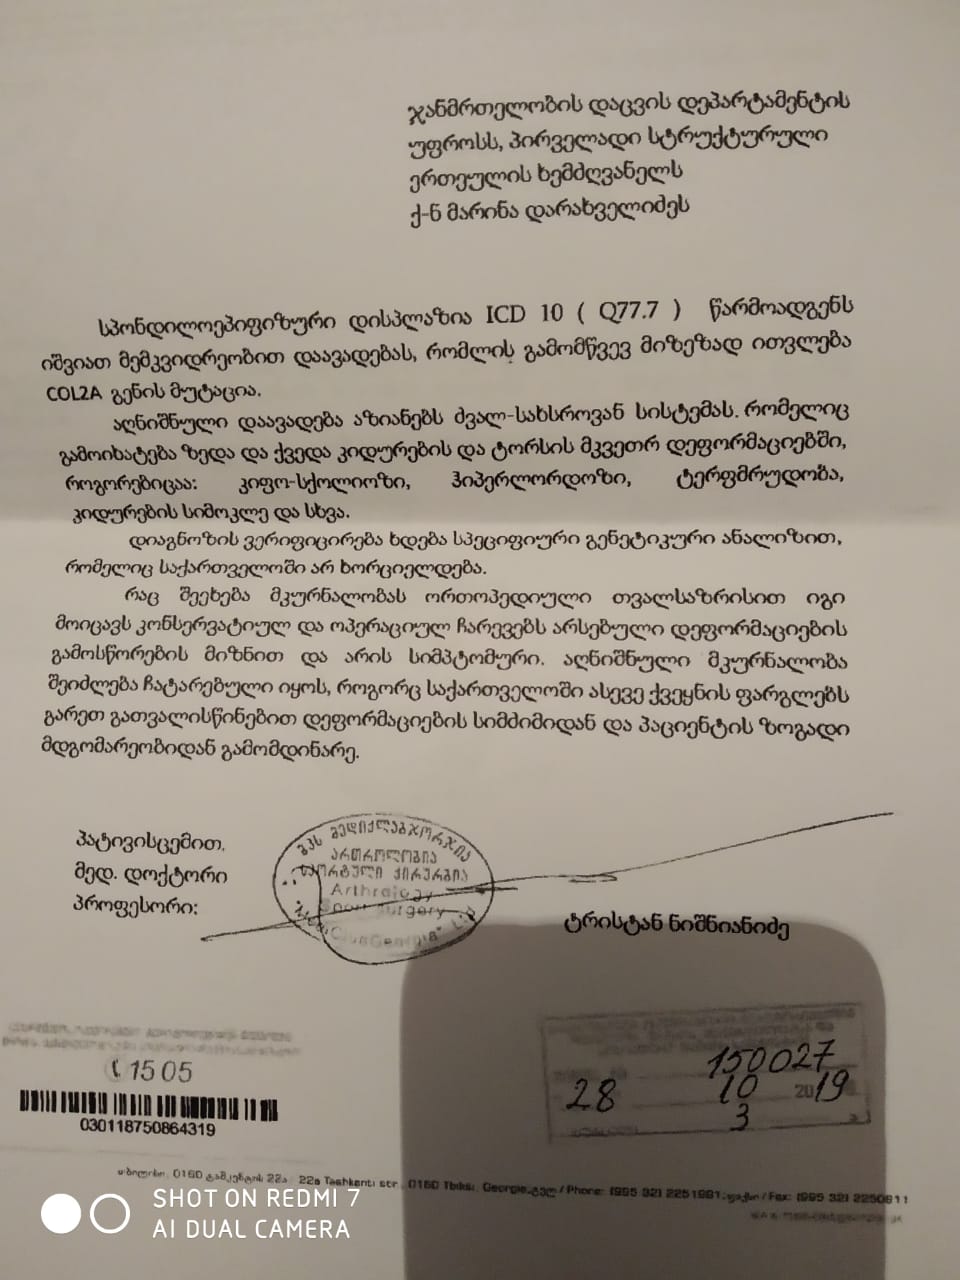 ჯანმრთელობის დაცვის დეპარტამენტის
უფროსს, პირველადი სტრუქტურული
ერთეულის ხემძღვანელს
ქ-ნ მარინა დარახველიძეს
სპონდილოეპიფიზური დისპლაზია ICD 10 ( Q77.7 ) წარმოადგენს
იშვიათ მემკვიდრეობით დაავადებას, რომლის გამომწვევ მიზეზად ითვლება
COL2A გენის მუტაცია.
აღნიშნული დაავადება აზიანებს ძვალ-სახსროვან სისტემას. რომელიც
გამოიხატება ზედა და ქვედა კიდურების და ტორსის მკვეთრ დეფორმაციებში,
როგორებიცაა: კიფო-სქოლიოზი, ჰიპერლორდოზი, ტერფმრუდობა,
კიდურების სიმოკლე და სხვა.
დიაგნოზის ვერიფიცირება ხდება სპეციფიური გენეტიკური ანალიზით,
რომელიც საქართველოში არ ხორციელდება.
რაც შეეხება მკურნალობას ორთოპედიული თვალსაზრისით იგი
მოიცავს კონსერვატიულ და ოპერაციულ ჩარევებს არსებული დეფორმაციების
გამოსწორების მიზნით და არის სიმპტომური. აღნიშნული მკურნალობა
შეიძლება ჩატარებული იყოს, როგორც საქართველოში ასევე ქვეყნის ფარგლებს
გარეთ გათვალისწინებით დეფორმაციების სიმძიმიდან და პაციენტის ზოგადი
მდგომარეობიდან გამომდინარე.
პატივისცემით,
მედ. დოქტორი
პროფესორი:
ტრისტან ნიშნიანიძე
შპს მედიქლაბჯორჯია
ართროლოგია
სპორტული ქირურგია
Arthrology
Sport Surgery
"MediClubGeorgia" Ltd
1505
030118750864319
150027
28 10 2019
3
თბილისი, 0160 ტაშკენტის 22ა / 22a Tashkenti str., 0160 Tbilisi, Georgia, ტელ / Phone: (995 32) 2251991; ფაქსი / Fax: (995 32) 2250911
SHOT ON REDMI 7
AI DUAL CAMERA